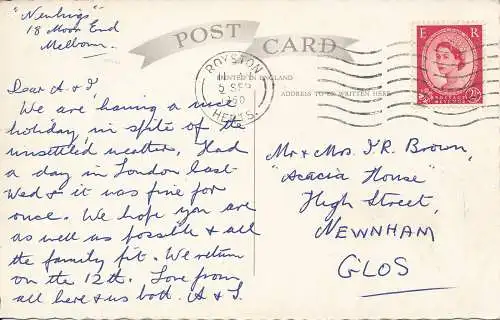 "Newlings"
18 Moor End
Melbourn.
POST CARD
PRINTED IN ENGLAND
ADDRESS TO BE WRITTEN HERE
ROYSTON
5 SEP
1960
HERTS.
E R
POSTAGE REVENUE
2½D
Dear A & J,
We are having a nice
holiday in spite of the
unsettled weather. Had
a day in London last
Wed & it was fine for
once. We hope you are
as well as possible & all
the family fit. We return
on the 12th. Love from
all here & us both. A & J.
Mr & Mrs J.R. Brown,
"Acacia House"
High Street,
NEWNHAM
GLOS